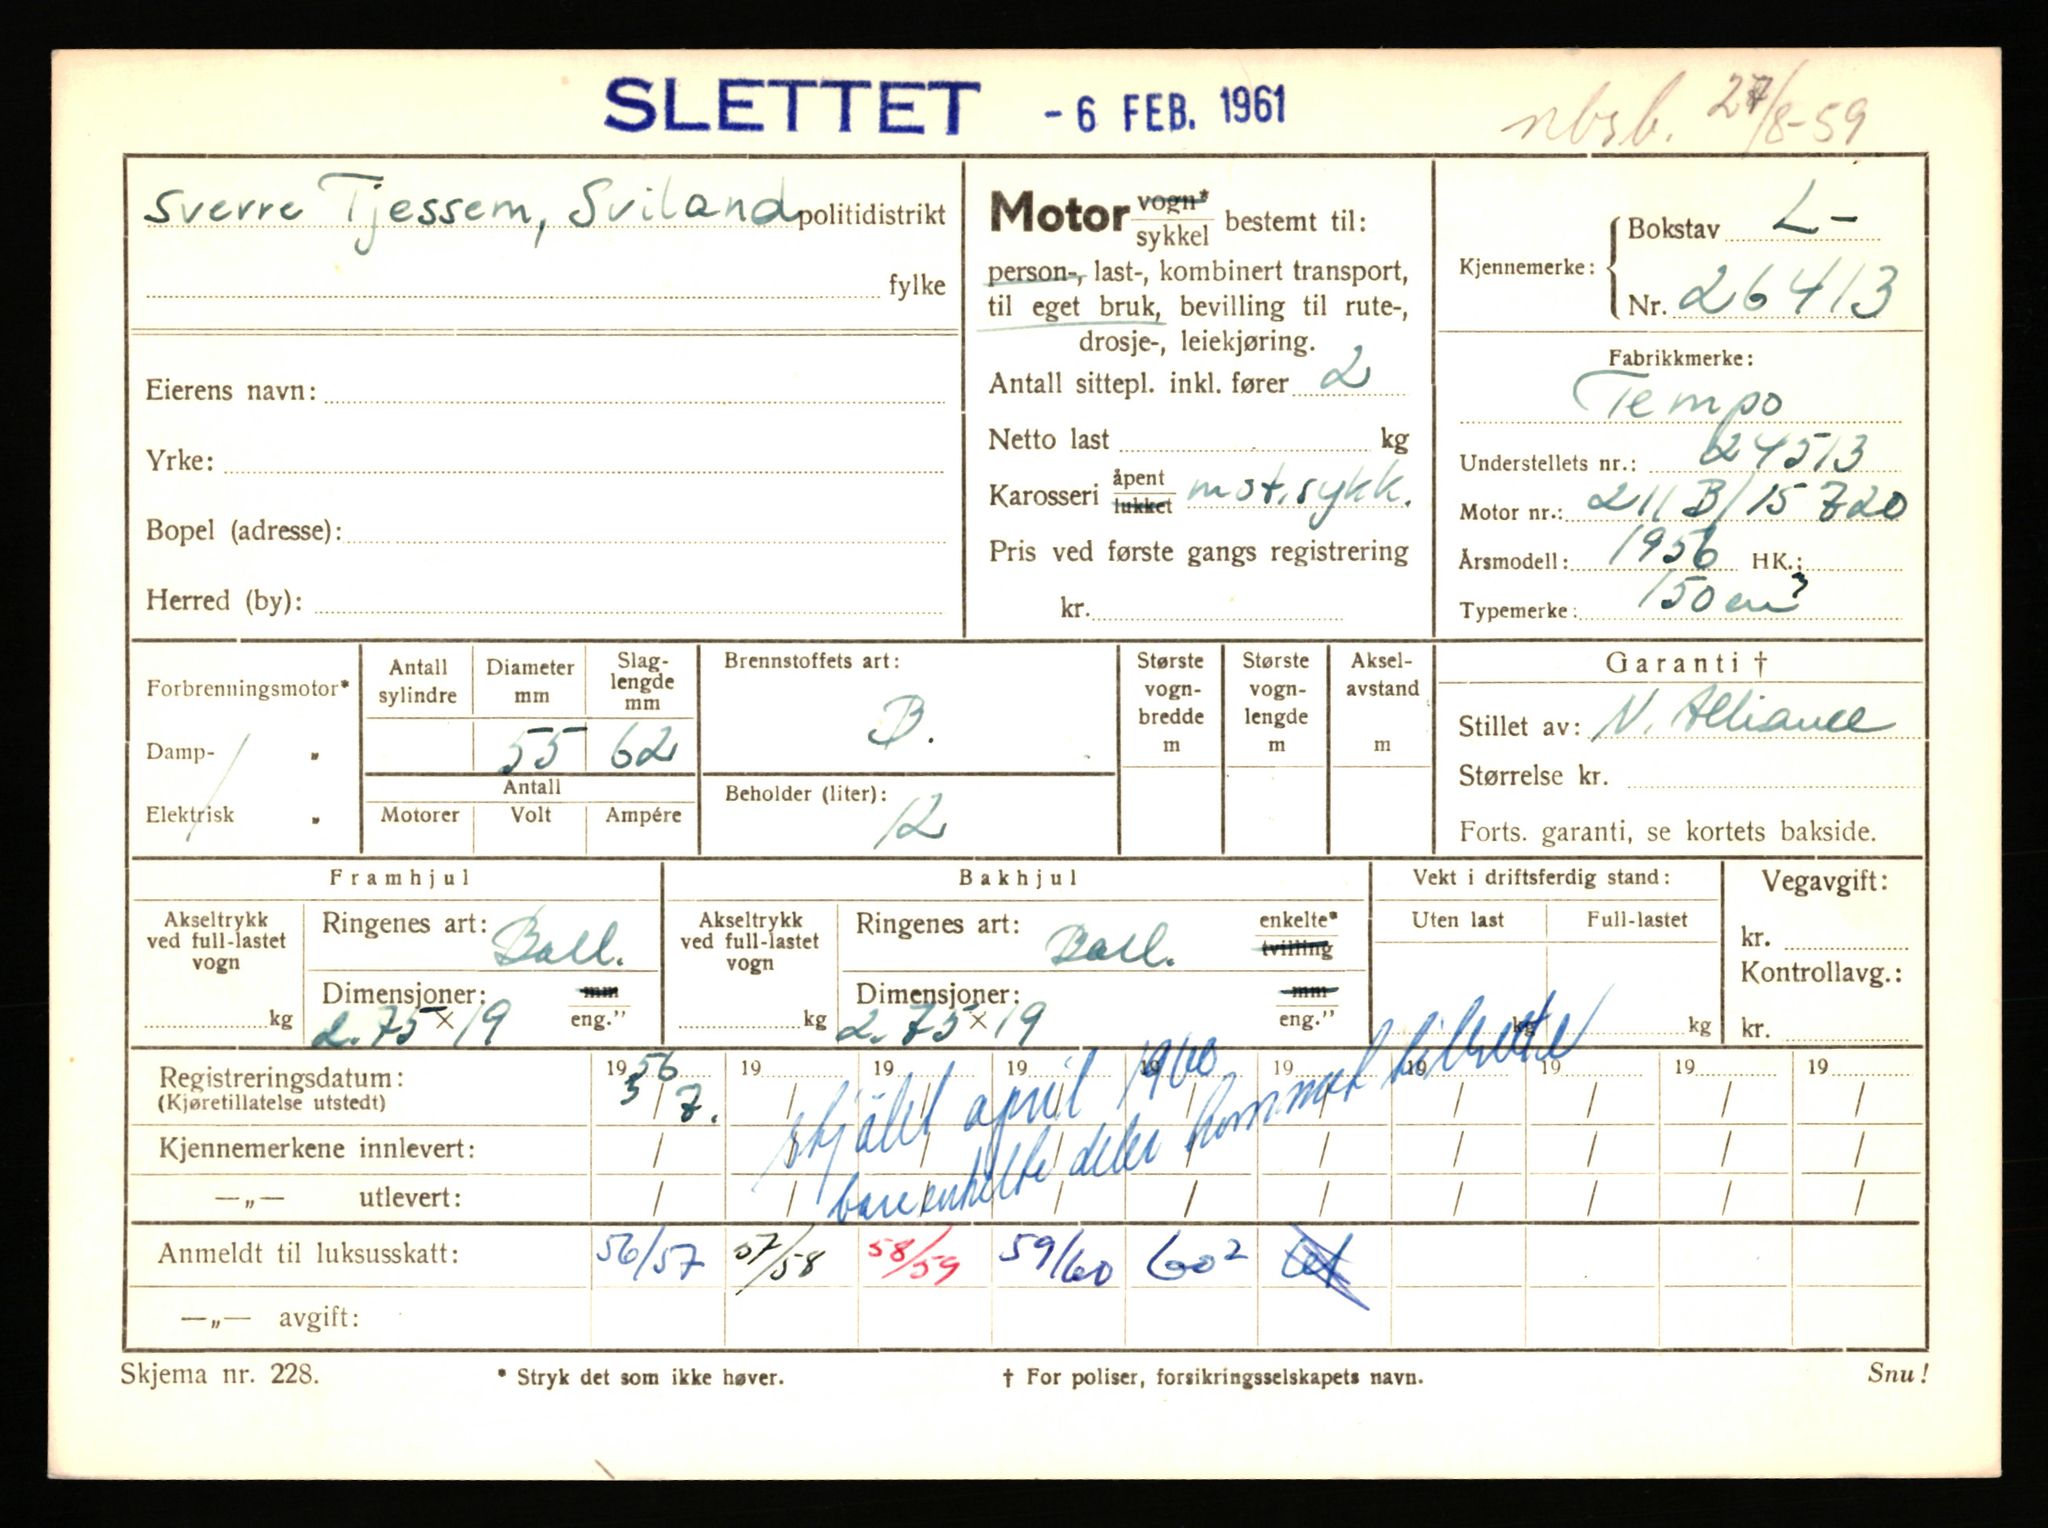 SLETTET - 6 FEB. 1961 27/8-59
Sverre Tjessem, Sviland politidistrikt
fylke
Eierens navn:
Yrke:
Bopel (adresse):
Herred (by):
Motor vogn* sykkel bestemt til:
person-, last-, kombinert transport,
til eget bruk, bevilling til rute-,
drosje-, leiekjøring.
Antall sittepl. inkl. fører 2
Netto last kg
Karosseri åpent lukket mot.sykk.
Pris ved første gangs registrering
kr.
Kjennemerke: Bokstav L-
Nr. 26413
Fabrikkmerke:
Tempo
Understellets nr.: 624513
Motor nr.: 211 B/15 720
Årsmodell: 1956 HK.:
Typemerke: 150 cm³
Forbrenningsmotor*
Damp- „
Elektrisk „
Antall sylindre
Diameter mm
Slag-lengde mm
55 62
Antall
Motorer Volt Ampére
Brennstoffets art:
B.
Beholder (liter):
12
Største vogn-bredde m
Største vogn-lengde m
Aksel-avstand m
Garanti †
Stillet av: N. Alliance
Størrelse kr.
Forts. garanti, se kortets bakside.
Framhjul
Akseltrykk ved full-lastet vogn
kg
Ringenes art: Ball.
Dimensjoner: mm eng."
2.75 × 19
Bakhjul
Akseltrykk ved full-lastet vogn
kg
Ringenes art: Ball. enkelte* tvilling
Dimensjoner: mm eng."
2.75 × 19
Vekt i driftsferdig stand:
Uten last Full-lastet
kg kg
Vegavgift:
kr.
Kontrollavg.:
kr.
Registreringsdatum: 1956 19 19 19 19 19 19 19 19 19
(Kjøretillatelse utstedt) 5/7. / / / / / / / / /
stjålet april 1960
bare enkelte deler kommet tilbette
Kjennemerkene innlevert: / / / / / / / / / /
—„— utlevert: / / / / / / / / / /
Anmeldt til luksusskatt: 56/57 57/58 58/59 59/60 60²
—„— avgift:
Skjema nr. 228. * Stryk det som ikke høver. † For poliser, forsikringsselskapets navn. Snu!